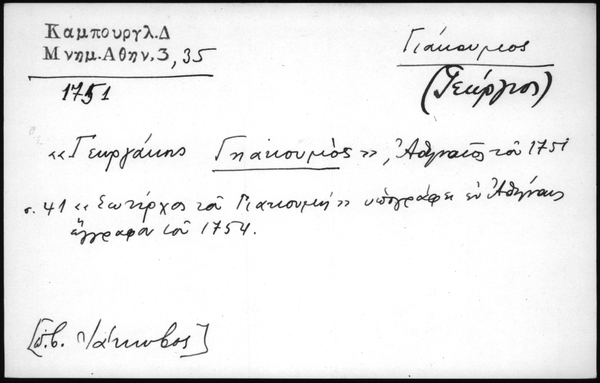 Καμπουργλ.Δ
Μνημ.Αθην.3, 35
1751
Γιάκουμιος
(Γεώργιος)
«Γεωργάκης Γιηάκουμιὸς», Ἀθηναῖος τοῦ 1751
σ. 41 «Σωτήρχος τοῦ Γιακουμῆ» ὑπογράφει ἐν Ἀθήναις
ἔγγραφον τοῦ 1754.
Ἰάκωβος]